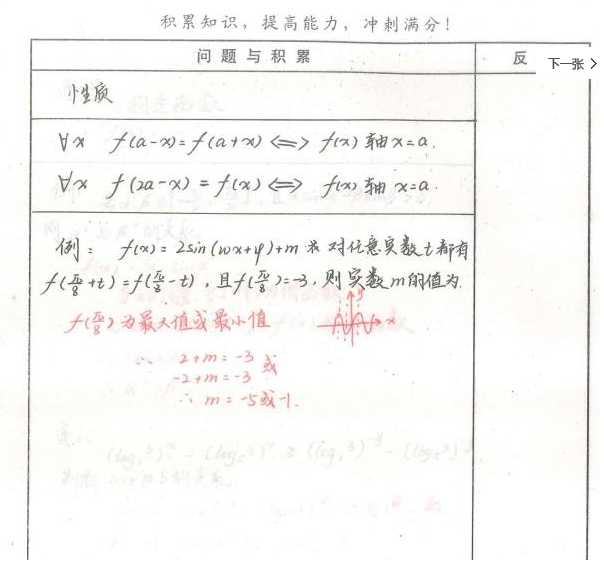 积累知识，提高能力，冲刺满分！
问题与积累
反
下一张
性质
∀x f(a-x)=f(a+x)⟺ f(x) 轴 x=a.
∀x f(2a-x)=f(x)⟺ f(x) 轴 x=a.
例： f(x)=2sin(wx+φ)+m 对任意实数t都有
f(π/8+t)=f(π/8-t)，且f(π/8)=-3，则实数m的值为.
f(π/8)为最大值或最小值
y
x
∴ 2+m=-3 或
-2+m=-3
∴ m=-5或-1.